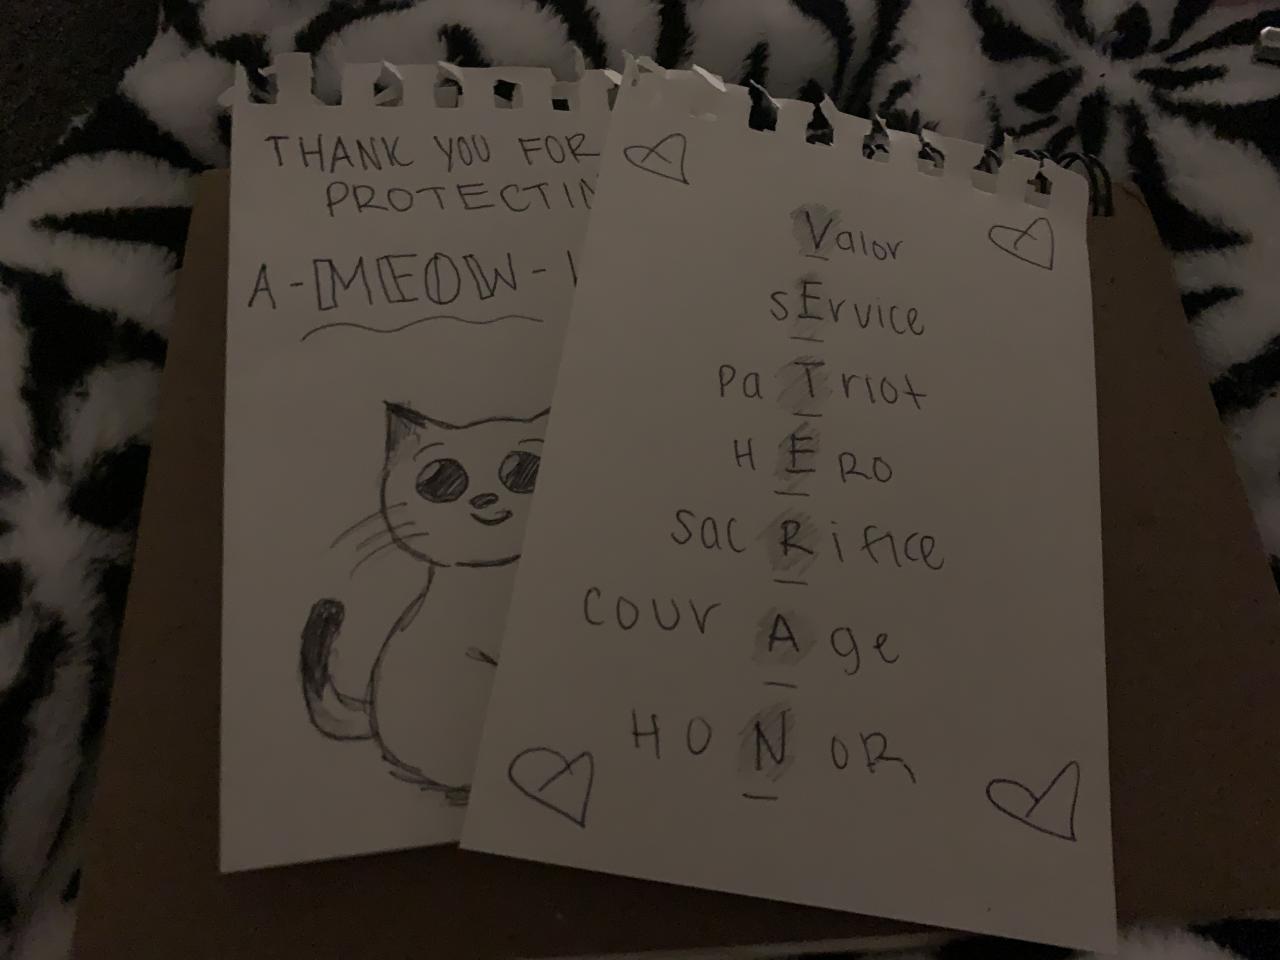 THANK YOU FOR
PROTECTIN
A-MEOW-
Valor
sErvice
PaTriot
HERO
sacRifice
courAge
HONOR